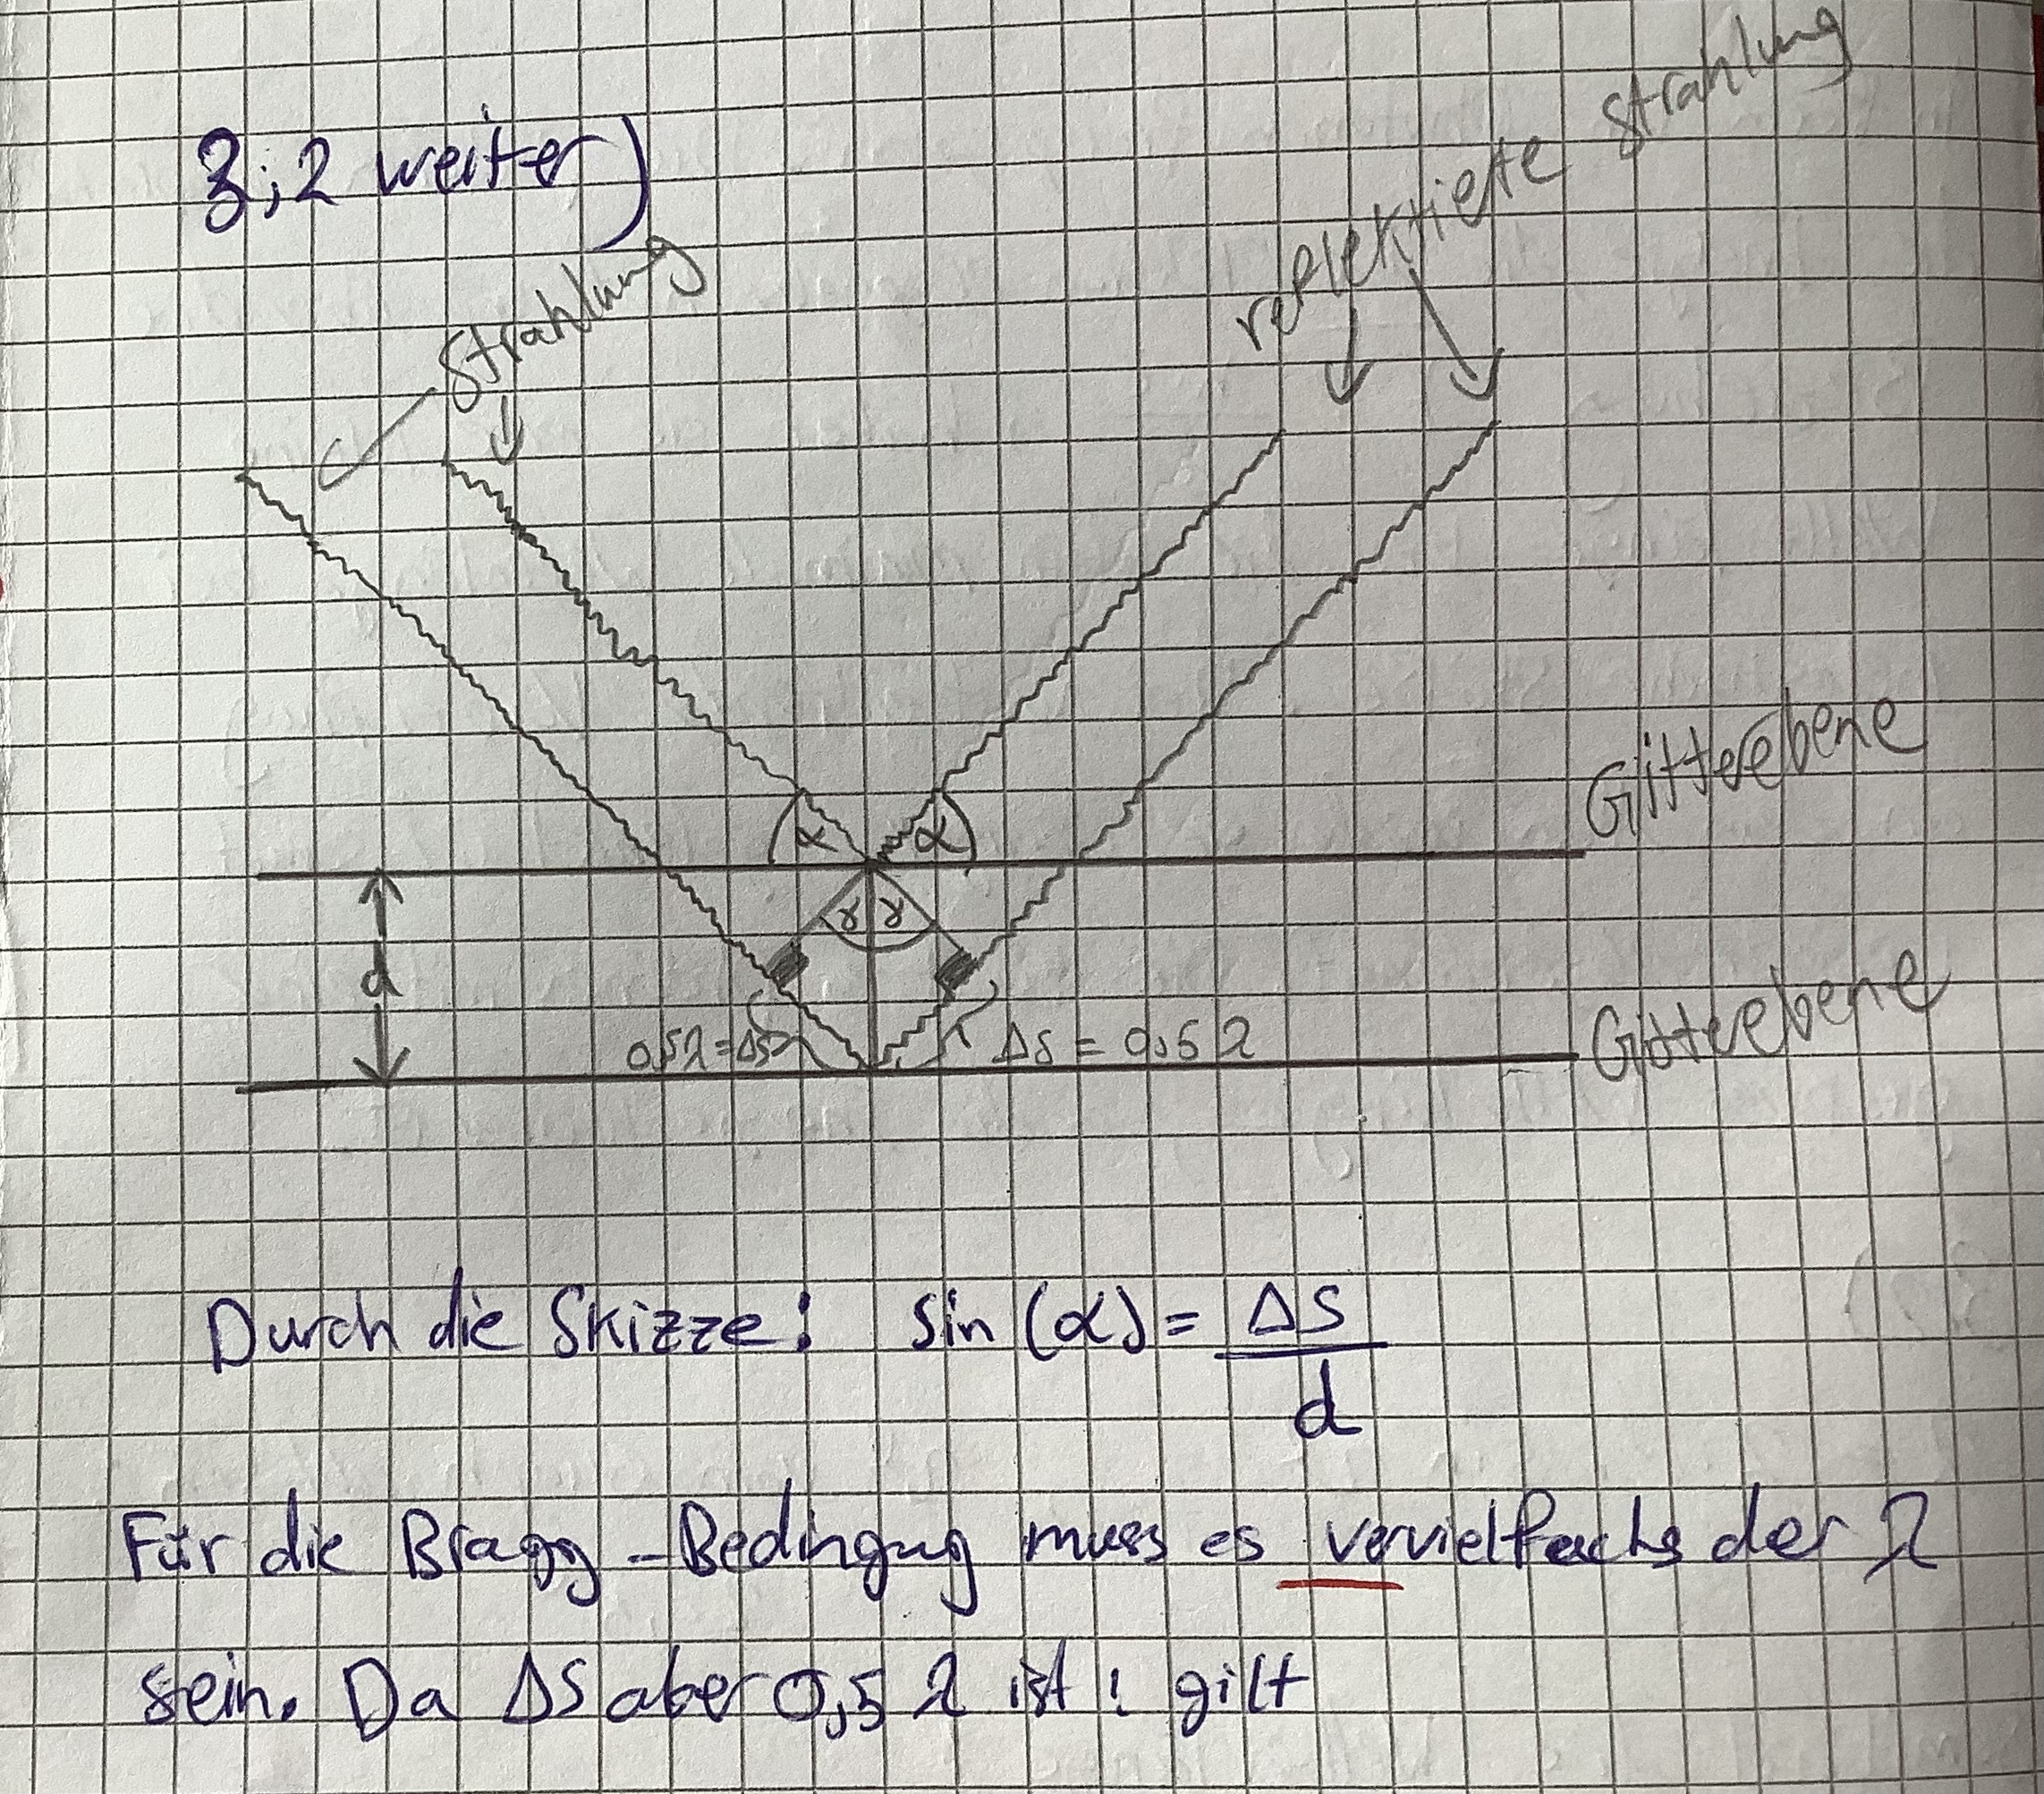 3; 2 weiter)
Strahlung
reflektierte Strahlung
α α
Gitterebene
γ γ
d
0,5λ=Δs
Δs = 0,5λ
Gitterebene
Durch die Skizze: sin (α) = ΔS / d
Für die Bragg-Bedingug muss es vervielfachs der λ
sein. Da ΔS aber 0,5 λ ist: gilt